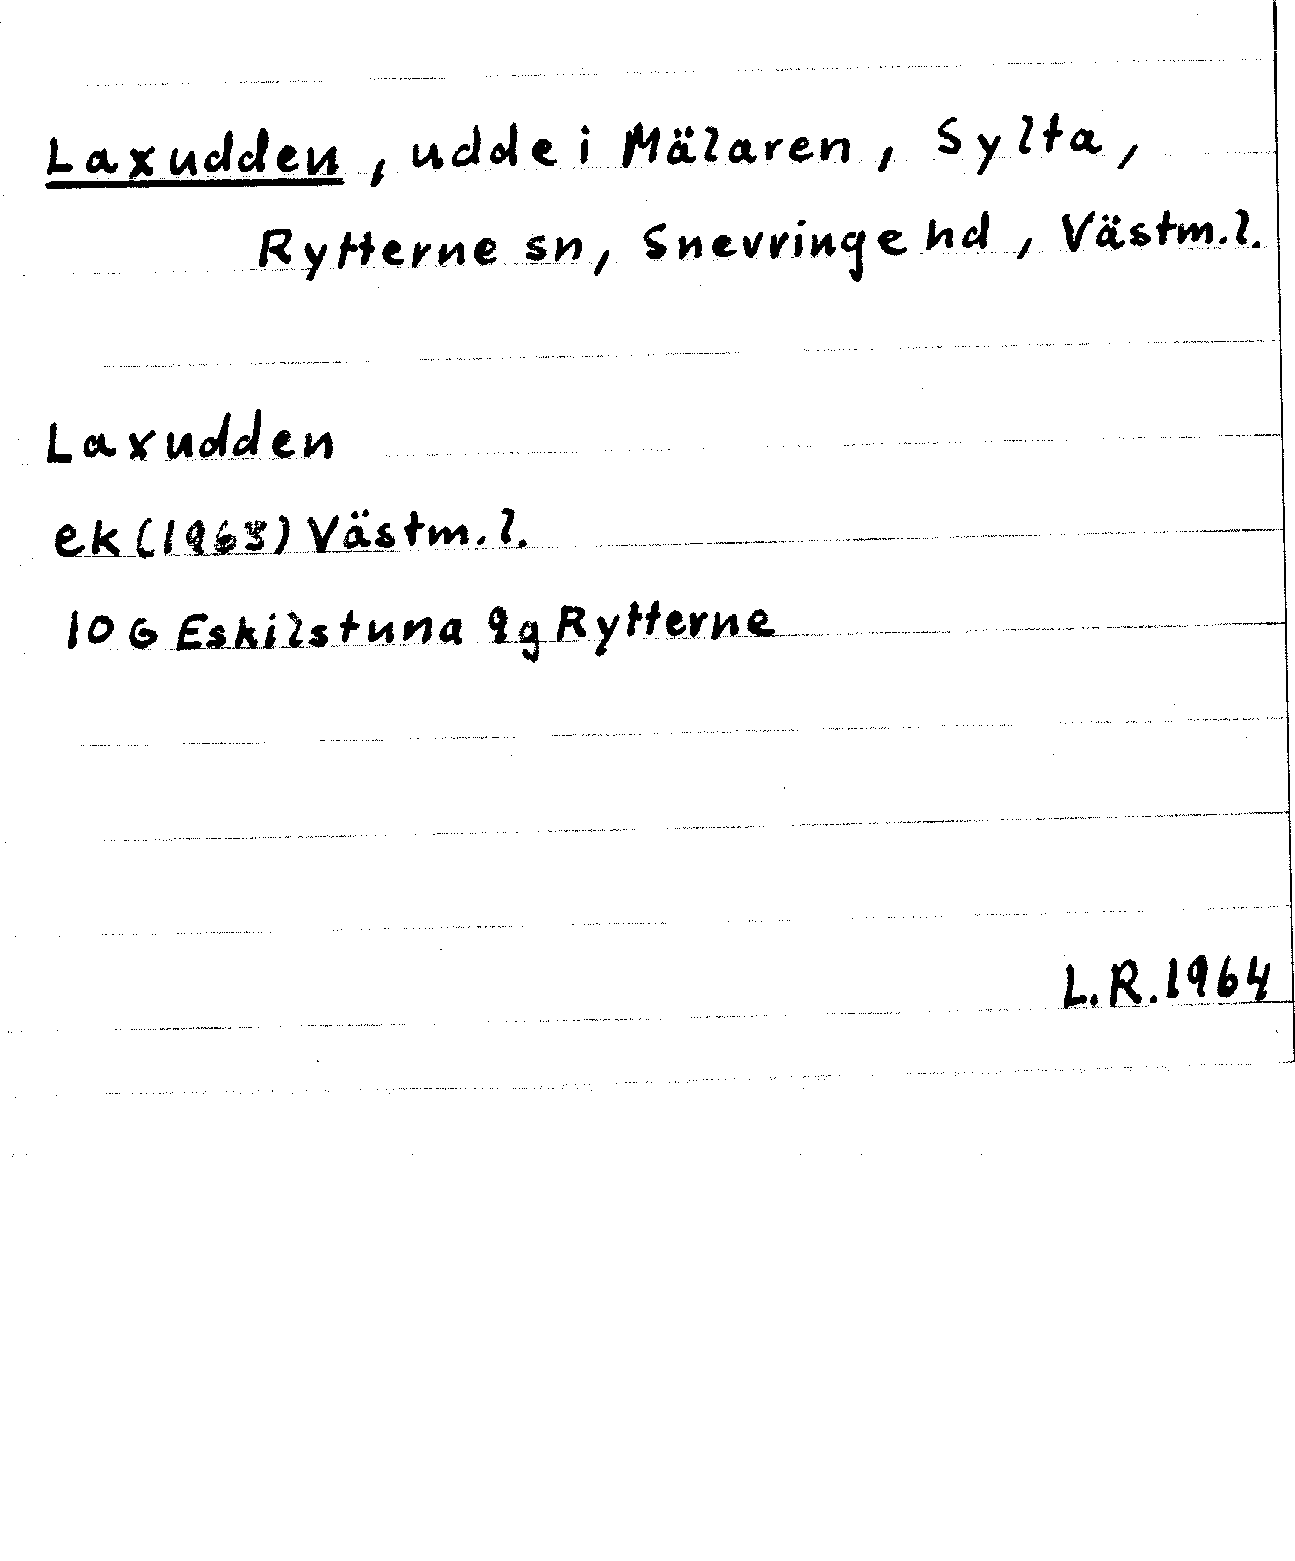 Laxudden, udde i Mälaren, Sylta,
Rytterne sn, Snevringe hd, Västm.l.
Laxudden
ek (1963) Västm.l.
10 G Eskilstuna 9g Rytterne
L.R. 1964